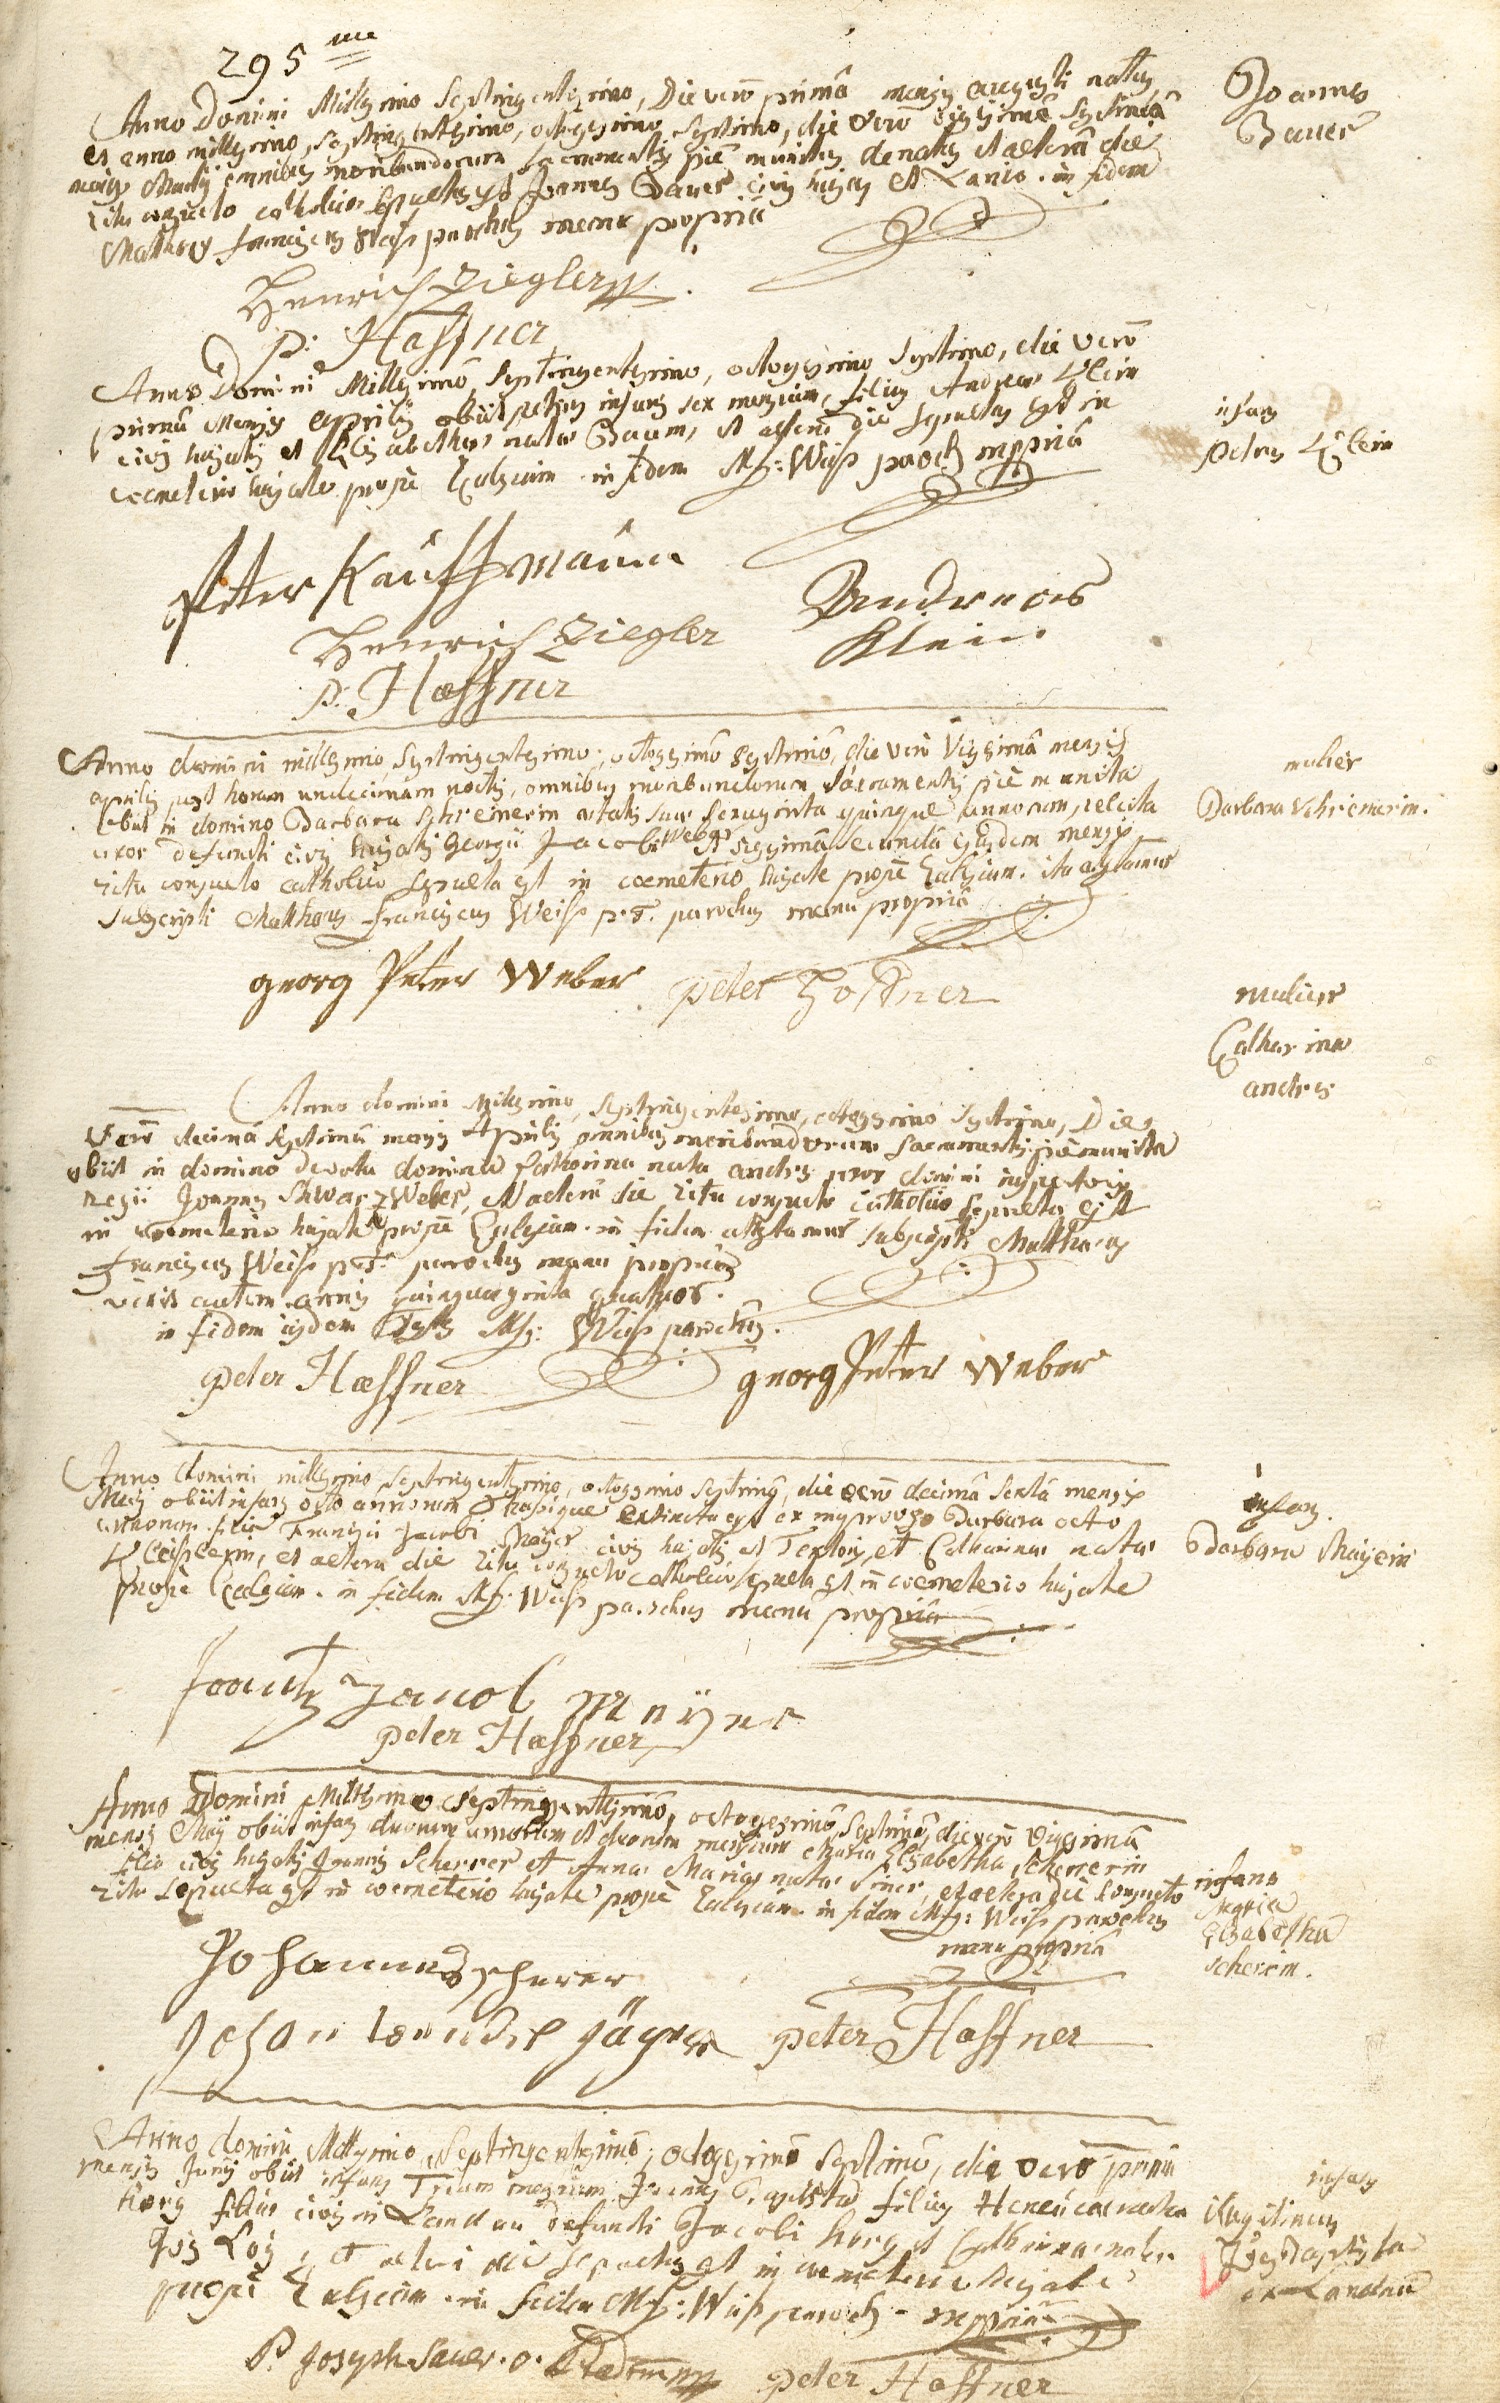 295 me
Anno Domini Millesimo Septingentesimo, Die vero primâ mensis augusti natus,
et anno millesimo, septingentesimo, octogesimo septimo, die vero vigesimâ septimâ
mensis Martij omnibus moribundorum sacramentis piè munitus denatus et alterâ die
ritu consueto catholico sepultus est Joannes Bauer civis hujas et Lanio. in fidem
Mathaeus franciscus Weiss parochus manu propriâ
Joannes
Bauer
Henrich Ziegler
P: Haffner
Anno Domini Millesimo, Septingentesimo, octogesimo Septimo, die vero
primâ Mensis aprilis obiit petrus infans sex mensium, filius Andreae Klein
civis hujatis et Elisabethae natae Baum, et alterâ die sepultus est in
coemeterio hujate propè Ecclesiam. in fidem Mf: Weiss paroch mppriâ
infans
Petrus Klein
Peter Kauffmann
Andreas
Klein
Henrich Ziegler
P: Haffner
Anno domini millesimo, Septingentesimo, octogesimô septimô, die vero Vigesimâ mensis
aprilis post horam undecimam noctis, omnibus moribundorum sacramentis piè munita
obiit in domino Barbara Schreinerin aetatis suae sexaginta quinque annorum, relicta
uxor defuncti civis hujatis Georgii Jacobi Weber et vigesimâ secundâ ejusdem mensis
ritu consueto catholico sepulta est in coemeterio hujate propè Ecclesiam. ita attestamur
subscripti Mathaeus franciscus Weiss p.t. parochus manu propriâ
mulier
Barbara Schreinerin.
georg Peter Weber
peter Haffner
mulier
Catharina
andres
Anno domini Millesimo, Septingentesimo, octogesimo septimo, Die
vero decimâ septimâ mensis Aprilis omnibus moribundorum sacramentis piè munita
obiit in domino devota domina Catharina nata andres uxor domini inspectoris
regii Joannis Schwarzweber, et alterâ die ritu consueto catholico sepulta est
in coemeterio hujate propè Ecclesiam. in fidem attestamur subscripti Mathaeus
franciscus Weiss p.t. parochus manu propriâ
vixit autem annis quinquaginta quatuor.
in fidem Mf: Weiss parochus.
peter Haeffner
georg Peter Weber
Anno domini millesimo, septingentesimo, octogesimo septimô, die vero decimâ sextâ mensis
Maij obiit infans octo annorum extincta est ex improviso Barbara octo
annorum filia Francisci Jacobi Mayer civis hujatis et Textoris et Catharinae natae
et alterâ die ritu consueto catholico sepulta est in coemeterio hujate
propè Ecclesiam. in fidem Mf: Weiss parochus manu propriâ
infans.
Barbara Mayerin
frantz Jacob mayer
peter Haffner
Anno Domini Millesimo septingentesimô, octogesimô, septimô, die vero vigesimâ
mensis Maij obiit infans duorum annorum et duorum mensium Maria Elisabetha Schererin
filia civis hujatis Joannis Scherrer et Annae Mariae natae, et alterâ die consueto
ritu sepulta est in coemeterio hujate propè Ecclesiam in fidem Mf: Weiss parochus
manu propriâ
infans
Maria
Elisabetha
Schererin.
Johannes scherer
Johan jäger
peter Haffner
Anno domini Millesimo, Septingentesimô, octogesimô septimô, die vero primâ
mensis Junij obiit infans Trium mensium Joannes Baptista filius
horg filius civis in Landau defuncti Jacobi horg et Catharinae natae
et alterâ die sepultus est in coemeterio hujate
propè Ecclesiam. in fidem Mf: Weiss paroch. mppriâ
infans
Baptista
ex Landau
P. Joseph Sauer.
peter Haffner